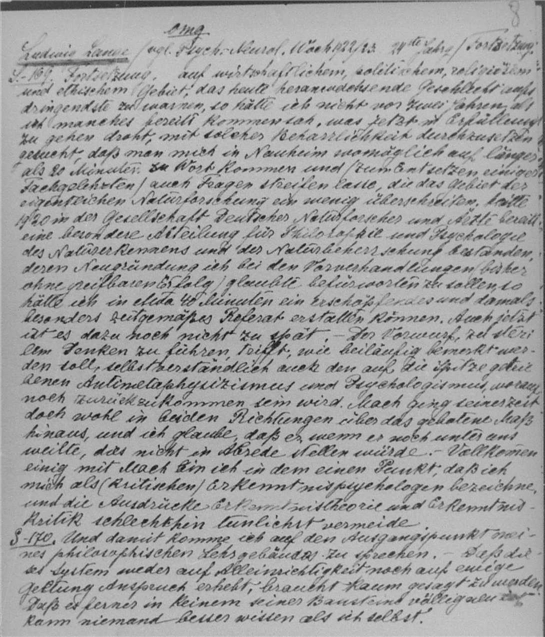 omg
8
Ludwig Lange (vgl. Psych.-Neurol. Woch. 1922/23 24ste Jahrg) (Fortsetzung)
S. 169. Fortsetzung. auf wirtschaftlichem, politischem, religiösem
und ethischem Gebiet, das heute heranwachsende Geschlecht aufs
dringendste zu warnen, so hätte ich nicht vor zwei Jahren, als
ich manches bereits kommen sah, was jetzt in Erfüllung
zu gehen droht, mit solcher Beharrlichkeit durchzusetzen
gesucht, daß man mich in Nauheim womöglich auf länger
als 20 Minuten zu Wort kommen und (zum Entsetzen einiger
Fachgelehrten) auch Fragen streifen lasse, die das Gebiet der
eigentlichen Naturforschung ein wenig überschreiten. Hätte
1920 in der Gesellschaft Deutscher Naturforscher und Ärzte bereits
eine besondere Abteilung für Philosophie und Psychologie
des Naturerkennens und der Naturbeherrschung bestanden,
deren Neugründung ich bei den Vorverhandlungen bisher
ohne greifbaren Erfolg) glaubte befürworten zu sollen, so
hätte ich in etwa 40 Minuten ein erschöpfendes und damals
besonders zeitgemäßes Referat erstatten können. Auch jetzt
ist es dazu noch nicht zu spät. – Der Vorwurf, zu steri
lem Denken zu führen, trifft, wie beiläufig bemerkt wer-
den soll, selbstverständlich auch den auf die Spitze getrie
benen Antimetaphysizismus und Psychologismus, worauf
noch zurückzukommen sein wird. Mach ging seinerzeit
doch wohl in beiden Richtungen über das gebotene Maß
hinaus, und ich glaube, daß er, wenn er noch unter uns
weilte, das nicht in Abrede stellen würde. – Vollkommen
einig mit Mach bin ich in dem einen Punkt, daß ich
mich als (kritischen) Erkenntnispsychologen bezeichne,
und die Ausdrücke Erkenntnistheorie und Erkenntnis-
kritik schlechthin tunlichst vermeide.
S. 170. Und damit komme ich auf den Ausgangspunkt mei-
nes philosophischen Lehrgebäudes zu sprechen. – Daß die-
ses System weder auf Alleinrichtigkeit noch auf ewige
Geltung Anspruch erhebt, braucht kaum gesagt zu werden.
Daß es ferner in keinem seiner Bausteine völlig neu ist
kann niemand besser wissen als ich selbst.